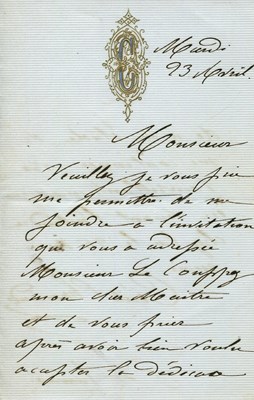 Mardi
23 Avril.
Monsieur
Veuillez je vous prie
me permettre de me
joindre à l'invitation
que vous a adressée
Monsieur Le Couppey
mon cher Maître
et de vous prier
après avoir bien voulu
accepter la dédicace